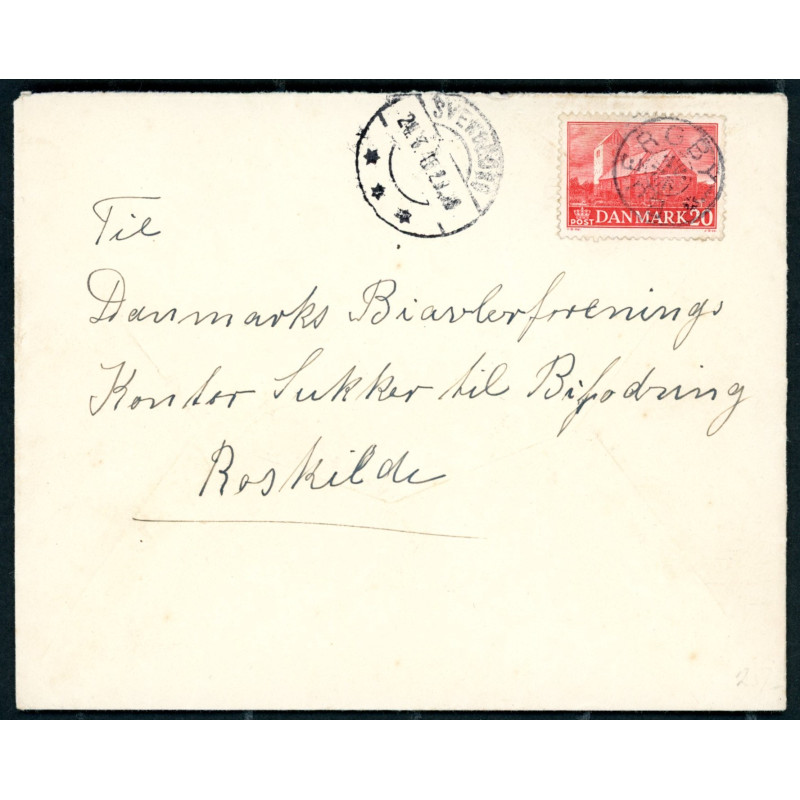 SVENDBORG
POST DANMARK 20
Til
Danmarks Biavlerforenings
Kontor Sukker til Bifodring
Roskilde